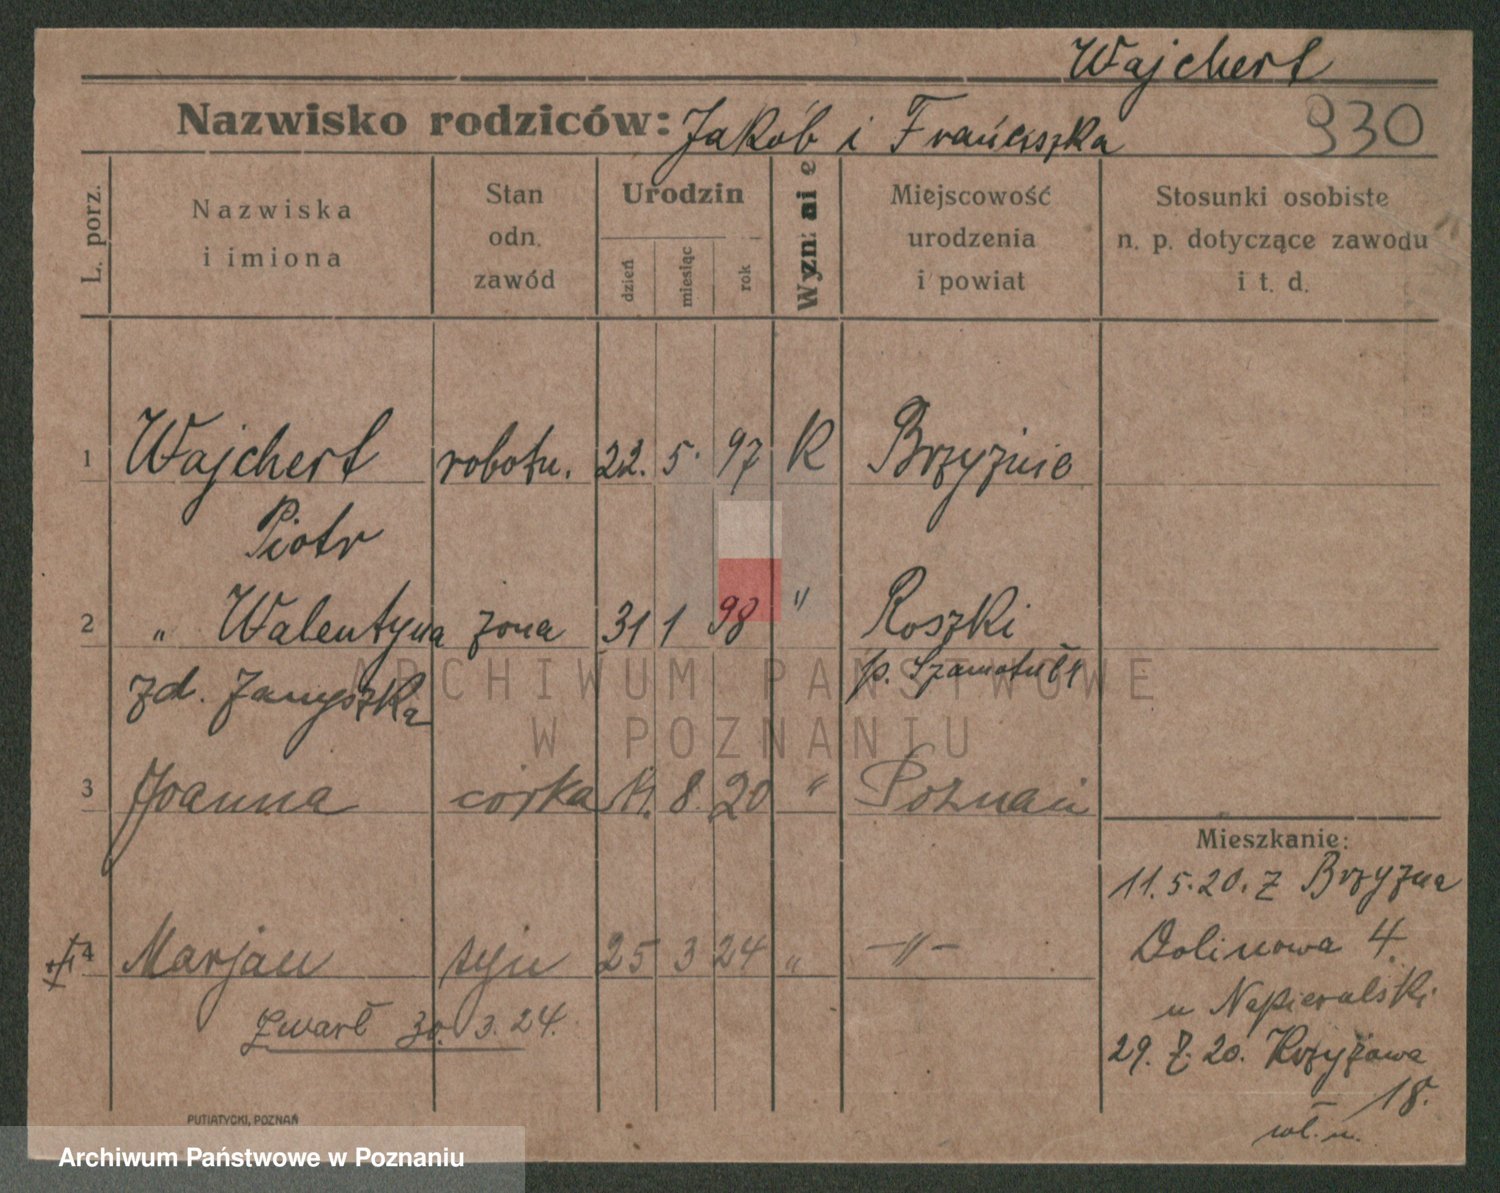 Wajchert
Nazwisko rodziców: Jakób i Franciszka 930
L. porz.
Nazwiska
i imiona
Stan
odn.
zawód
Urodzin
dzień
miesiąc
rok
Wyznanie
Miejscowość
urodzenia
i powiat
Stosunki osobiste
n. p. dotyczące zawodu
i t. d.
1 Wajchert robotn. 22. 5. 97 K Brzyźnie
Piotr
2 " Walentyna żona 31 1 98 " Roszki
p. Szamotuły
zd. Janyszka
3 Joanna córka 14. 8. 20 " Poznań
Mieszkanie:
11.5.20. z Brzyzna
4 Marjan syn 25 3 24 " —"—
Dolinowa 4.
u Napieralski
Zmarł 30. 3. 24.
29. 7. 20. Krzyżowa
18.
wł. m.
PUTIATYCKI, POZNAŃ
ARCHIWUM PAŃSTWOWE
W POZNANIU
Archiwum Państwowe w Poznaniu